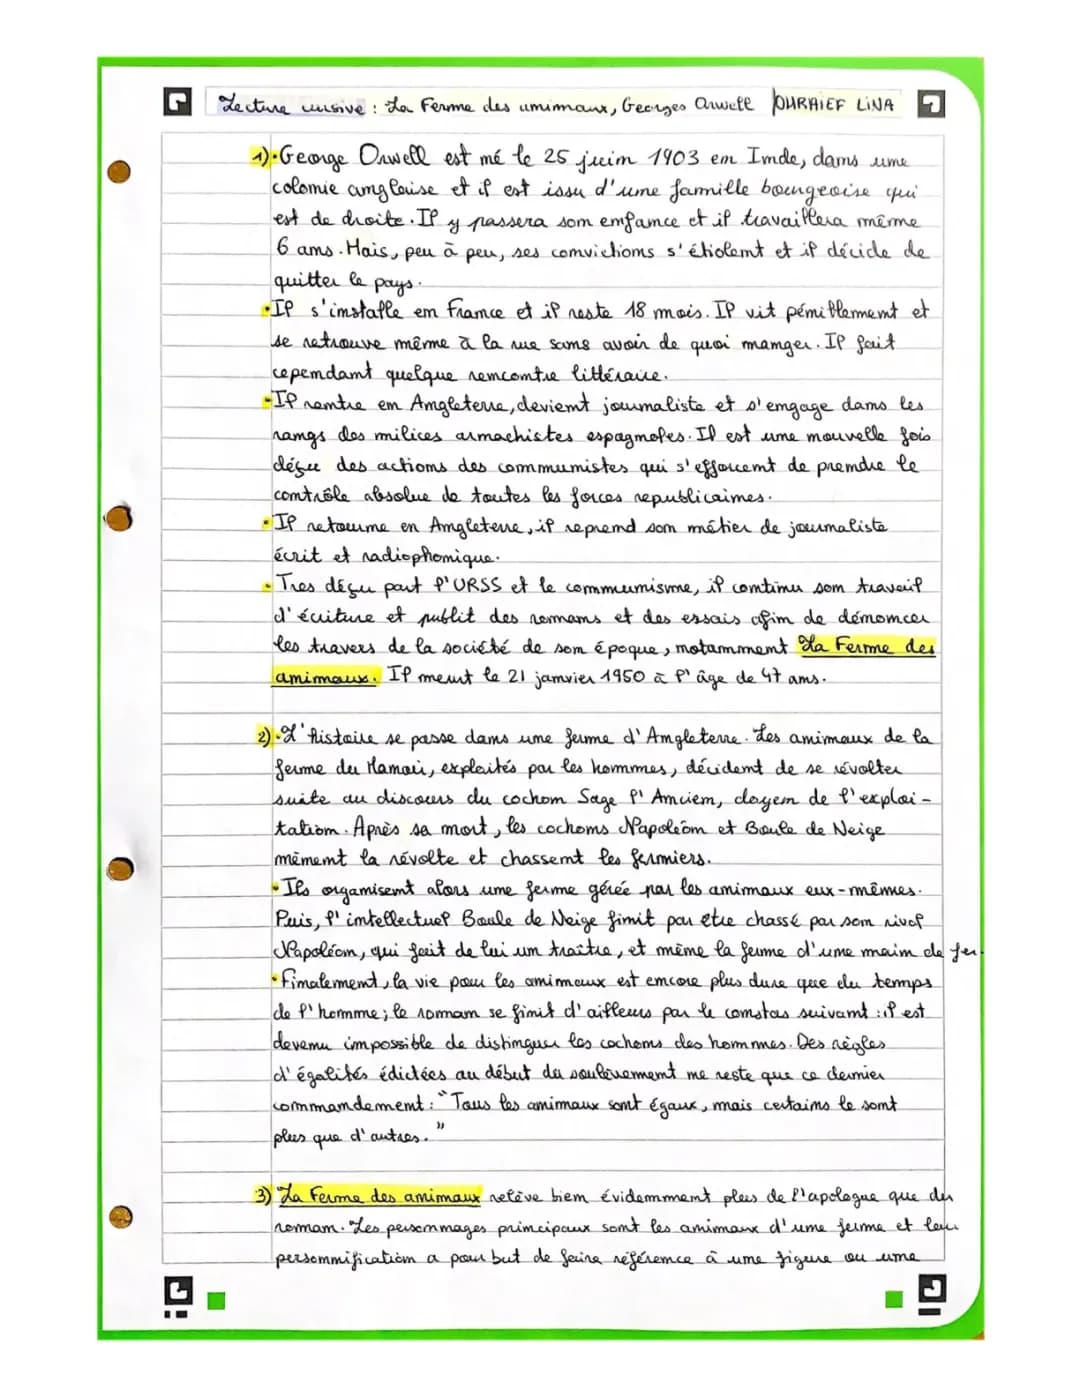 Lecture cursive : La Ferme des animaux, Georges Orwell OUHRAIEF LINA
1) • George Orwell est né le 25 juin 1903 en Inde, dans une
colonie anglaise et il est issu d'une famille bourgeoise qui
est de droite. Il y passera son enfance et il travaillera même
6 ans. Mais, peu à peu, ses convictions s'étiolent et il décide de
quitter le pays.
• Il s'installe en France et il reste 18 mois. Il vit péniblement et
se retrouve même à la rue sans avoir de quoi manger. Il fait
cependant quelque rencontre littéraire.
• Il rentre en Angleterre, devient journaliste et s'engage dans les
rangs des milices anarchistes espagnoles. Il est une nouvelle fois
déçu des actions des communistes qui s'efforcent de prendre le
contrôle absolue de toutes les forces republicaines.
• Il retourne en Angleterre, il reprend son métier de journaliste
écrit et radiophonique.
• Tres déçu part l'URSS et le communisme, il continu son travail
d'écriture et publit des romans et des essais afin de démoncer
les travers de la société de son époque, notamment La Ferme des
animaux. Il meurt le 21 janvier 1950 à l'âge de 47 ans.
2) • L'histoire se passe dans une ferme d'Angleterre. Les animaux de la
ferme du Manoir, exploités par les hommes, décident de se révolter
suite au discours du cochon Sage l'Ancien, doyen de l'exploi-
tation. Après sa mort, les cochons Napoléon et Boule de Neige
mènent la révolte et chassent les fermiers.
• Ils organisent alors une ferme gérée par les animaux eux-mêmes.
Puis, l'intellectuel Boule de Neige finit par être chassé par son rival
Napoléon, qui fait de lui un traître, et mène la ferme d'une main de fer.
• Finalement, la vie pour les animaux est encore plus dure que du temps
de l'homme ; le roman se finit d'ailleurs par le constas suivant : il est
devenu impossible de distinguer les cochons des hommes. Des règles
d'égalités édictées au début du soulèvement ne reste que ce dernier
commandement : "Tous les animaux sont égaux, mais certains le sont
plus que d'autres."
3) La Ferme des animaux relève bien évidemment plus de l'apologue que du
roman. Les personnages principaux sont les animaux d'une ferme et leur
personnification a pour but de faire référence à une figure ou une